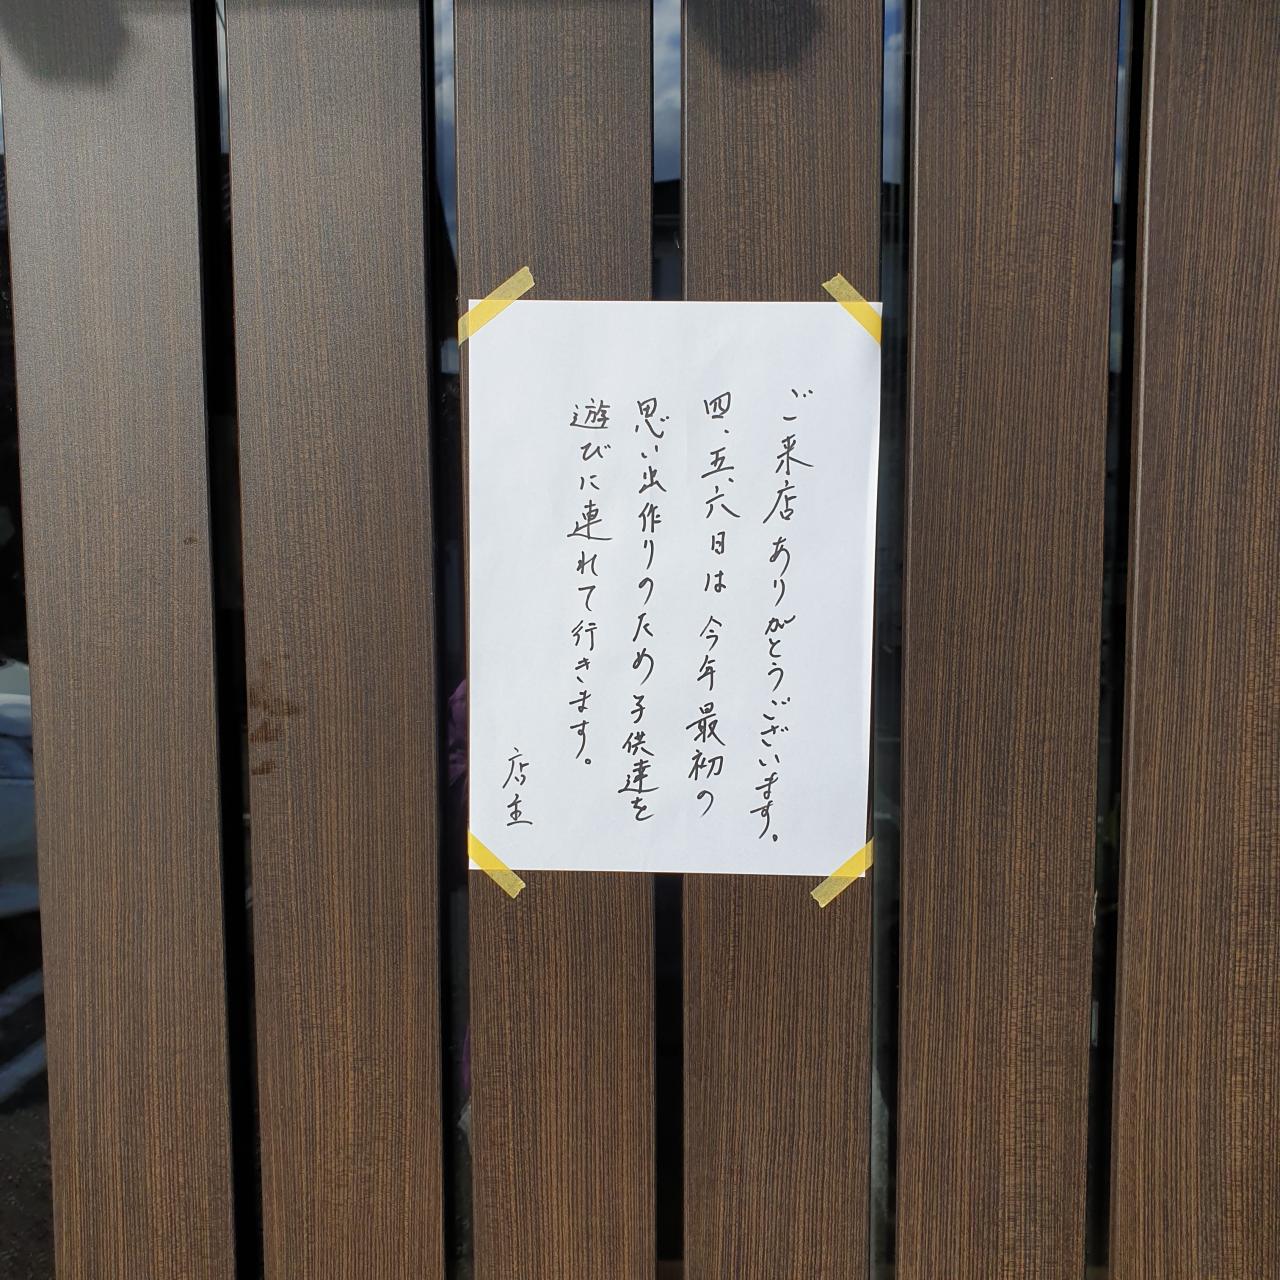 ご来店ありがとうございます。
四、五、六日は今年最初の
思い出作りのため子供達を
遊びに連れて行きます。
店主